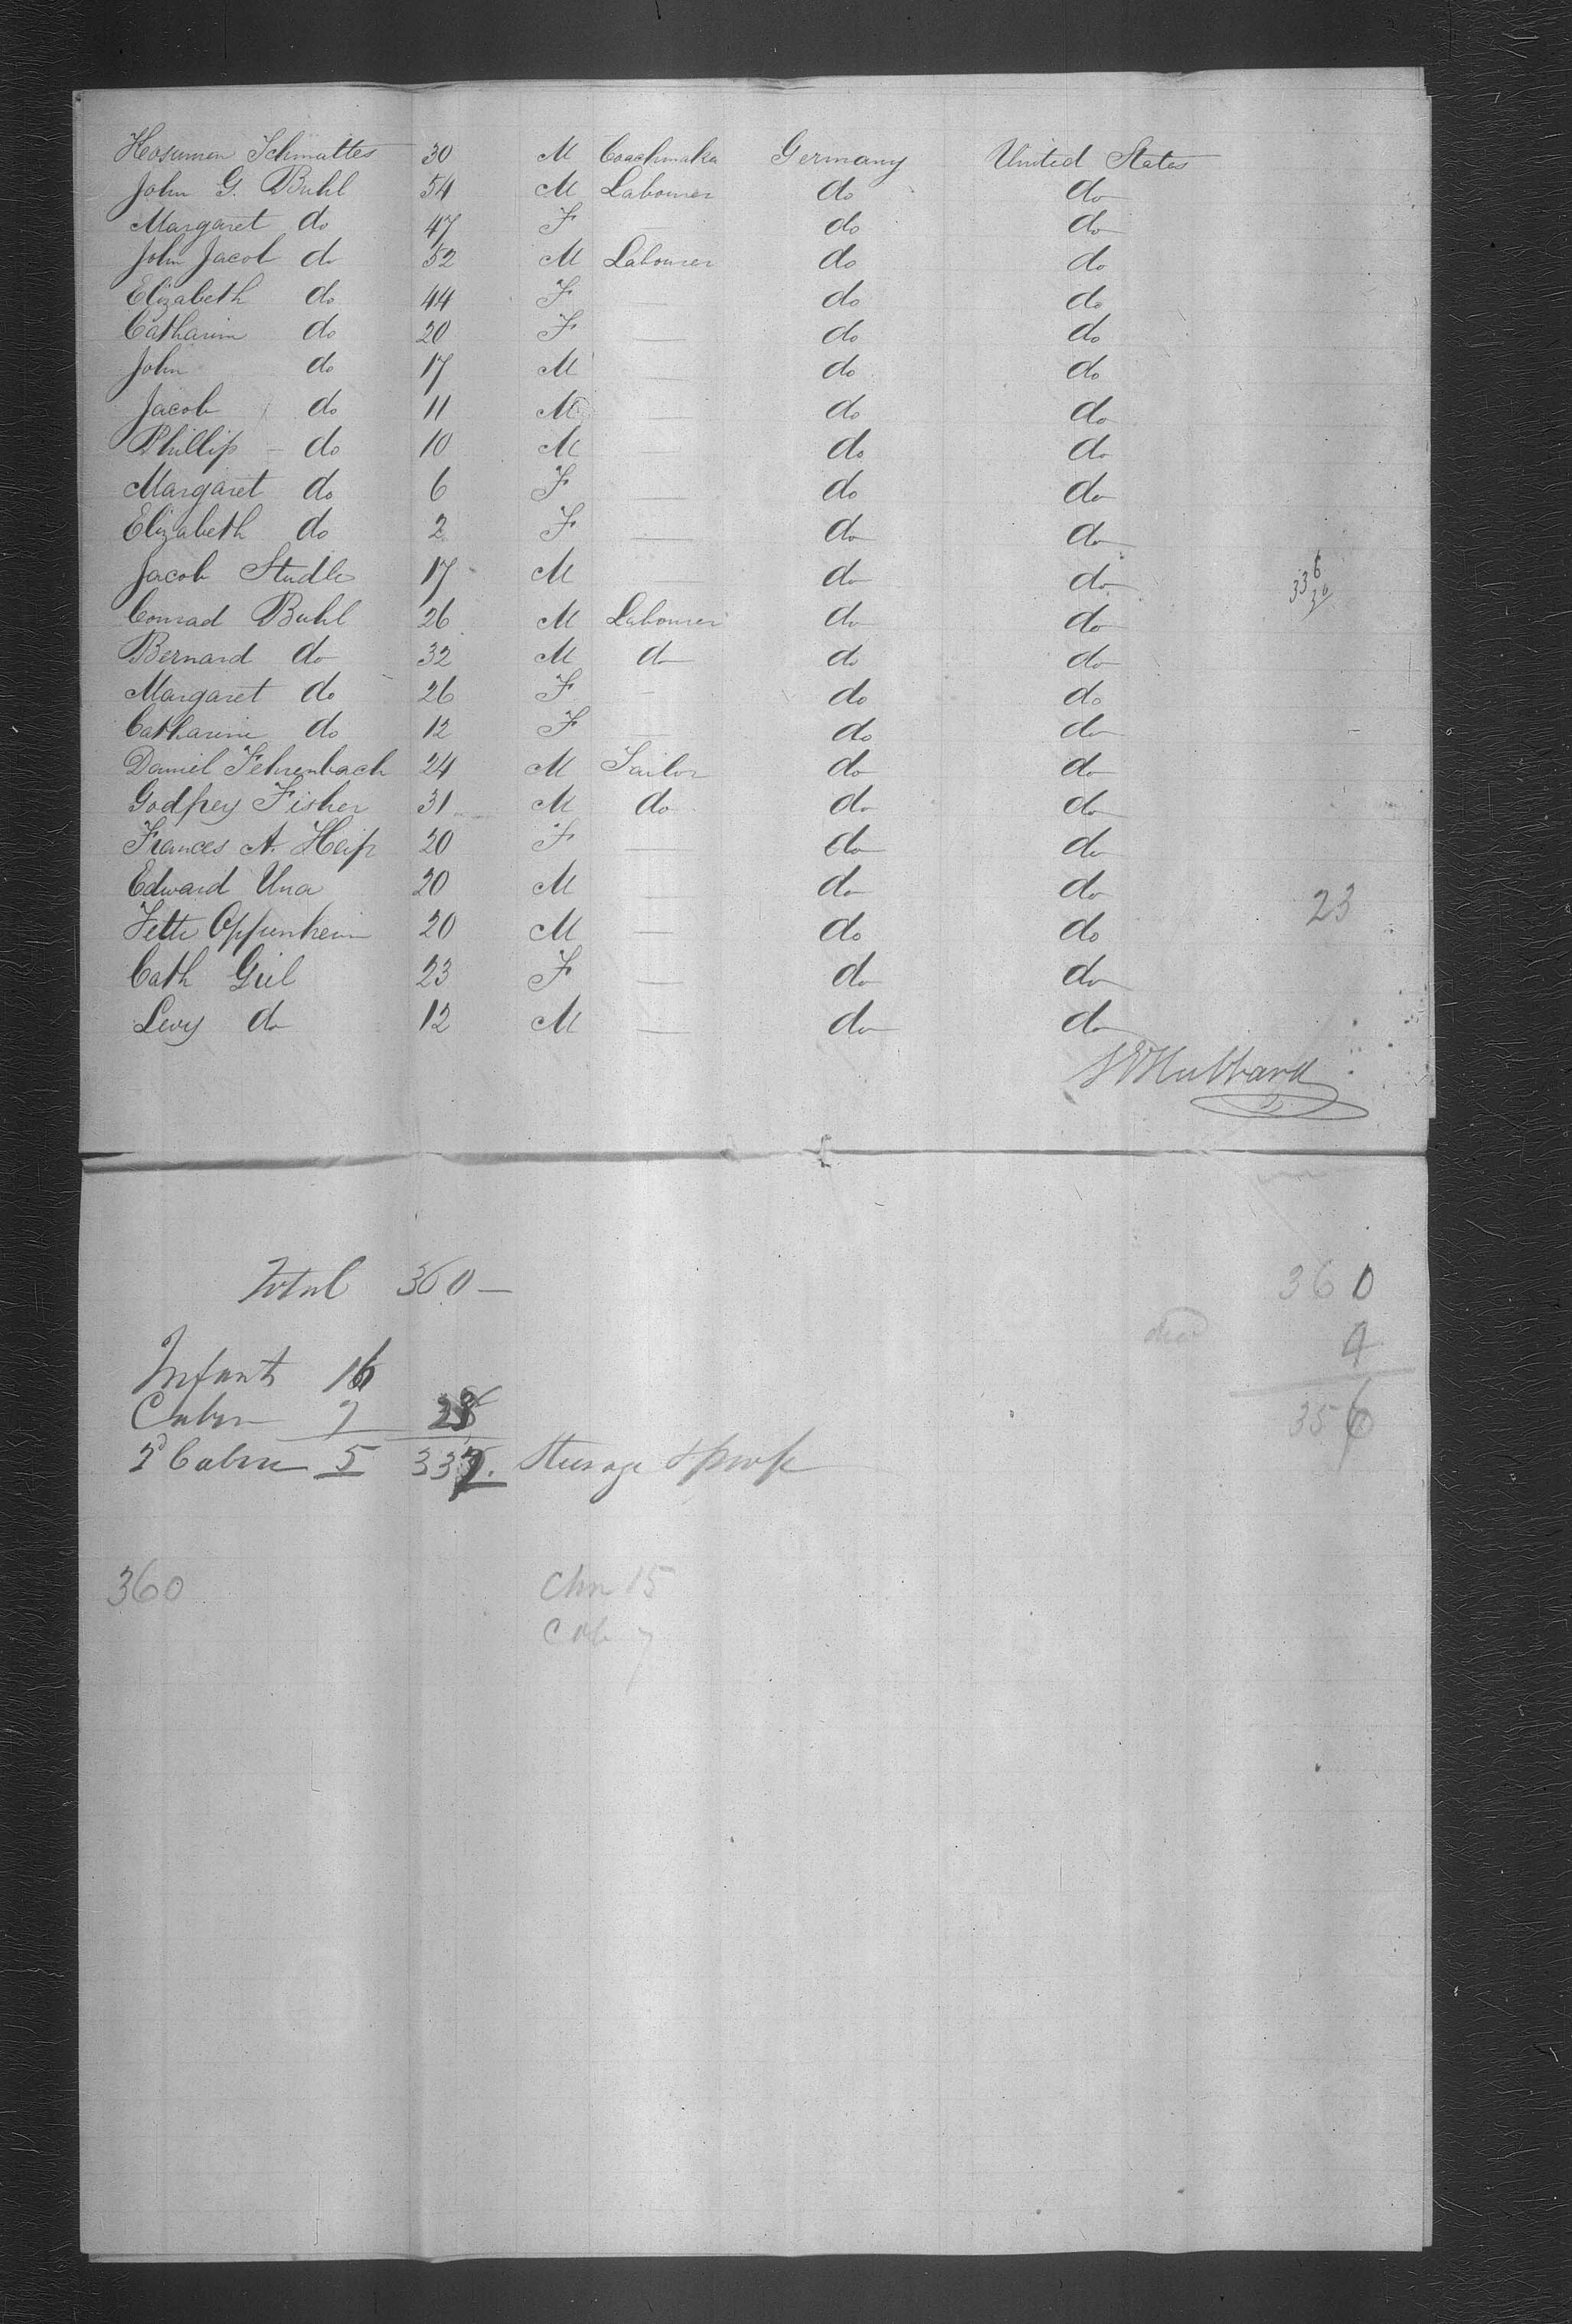 Hosumen Schmattes 30 M Coachmaker Germany United States
John G. Buhl 54 M Labourer do do
Margaret do 47 F do do
John Jacob do 52 M Labourer do do
Elizabeth do 44 F — do do
Catharine do 20 F — do do
John do 17 M — do do
Jacob do 11 M — do do
Phillip - do 10 M — do do
Margaret do 6 F — do do
Elizabeth do 2 F — do do
Jacob Studle 17 M — do do
336
30
Conrad Buhl 26 M Labourer do do
Bernard do 32 M do do do
Margaret do 26 F — do do
Catharine do 12 F — do do
Daniel Fehrenbach 24 M Tailor do do
Godfrey Fisher 31 M do do do
Frances A. Heip 20 F — do do
Edward Una 20 M — do do
23
Fette Oppenheim 20 M — do do
Cath Giel 23 F — do do
Levy do 12 M — do do
Hubbard
Total 360 — 360
4
Infants 16
Cabin 7 28 356
2d Cabin 5 332. Steerage
360 Chn 15
Cab 7